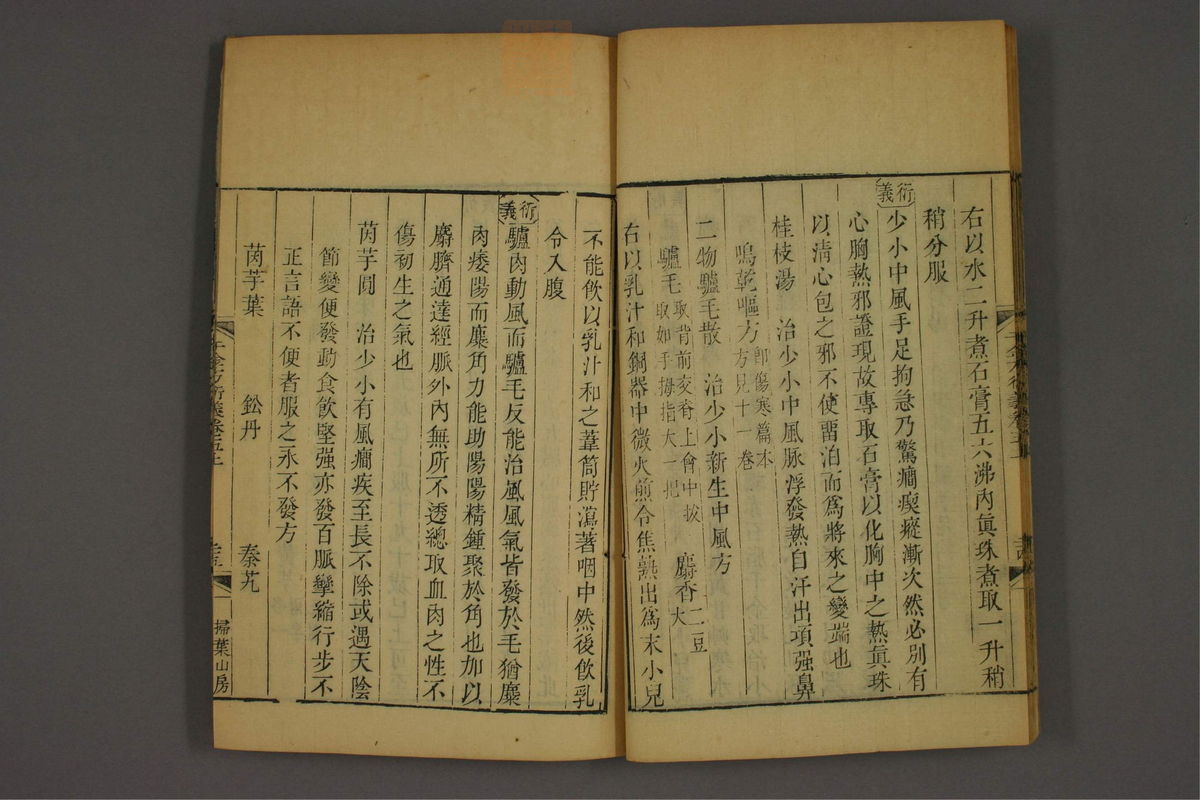 右以水二升煮石膏五六沸內眞珠煮取一升稍
稍分服
衍義
少小中風手足拘急乃驚癎瘈瘲漸次然必別有
心胸熱邪證現故專取石膏以化胸中之熱眞珠
以淸心包之邪不使畱泊而爲將來之變端也
桂枝湯 治少小中風脉浮發熱自汗出項强鼻
鳴乾嘔方 卽傷寒篇本
方見十一卷
二物驢毛散 治少小新生中風方
驢毛 取背前交脊上會中拔
取如手拇指大一把 麝香二豆
大
右以乳汁和銅器中微火煎令焦熟出爲末小兒
不能飮以乳汁和之葦筒貯瀉著咽中然後飮乳
令入腹
衍義
驢肉動風而驢毛反能治風風氣皆發於毛猶麋
肉痿陽而麋角力能助陽陽精鍾聚於角也加以
麝臍通達經脈外內無所不透總取血肉之性不
傷初生之氣也
茵芋圓 治少小有風癎疾至長不除或遇天陰
節變便發動食飮堅强亦發百脈攣縮行步不
正言語不便者服之永不發方
茵芋葉 鈆丹 秦艽
千金方衍義卷五上
掃葉山房